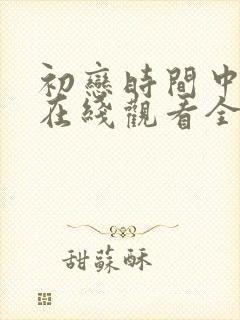 初戀時間中
在綫觀看全
甜蘇酥